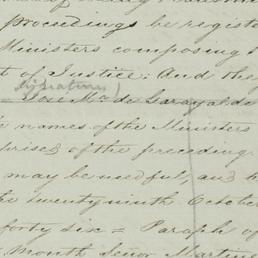 proceedings be registe
Ministers composing t
t of Justice: And they
(Signatures)
José Mᵃ de Garayalde
e names of the Ministers
prised of the preceding
may be needful, and h
the twentyninth October
forty six = Paraph of
Month Señor Martine